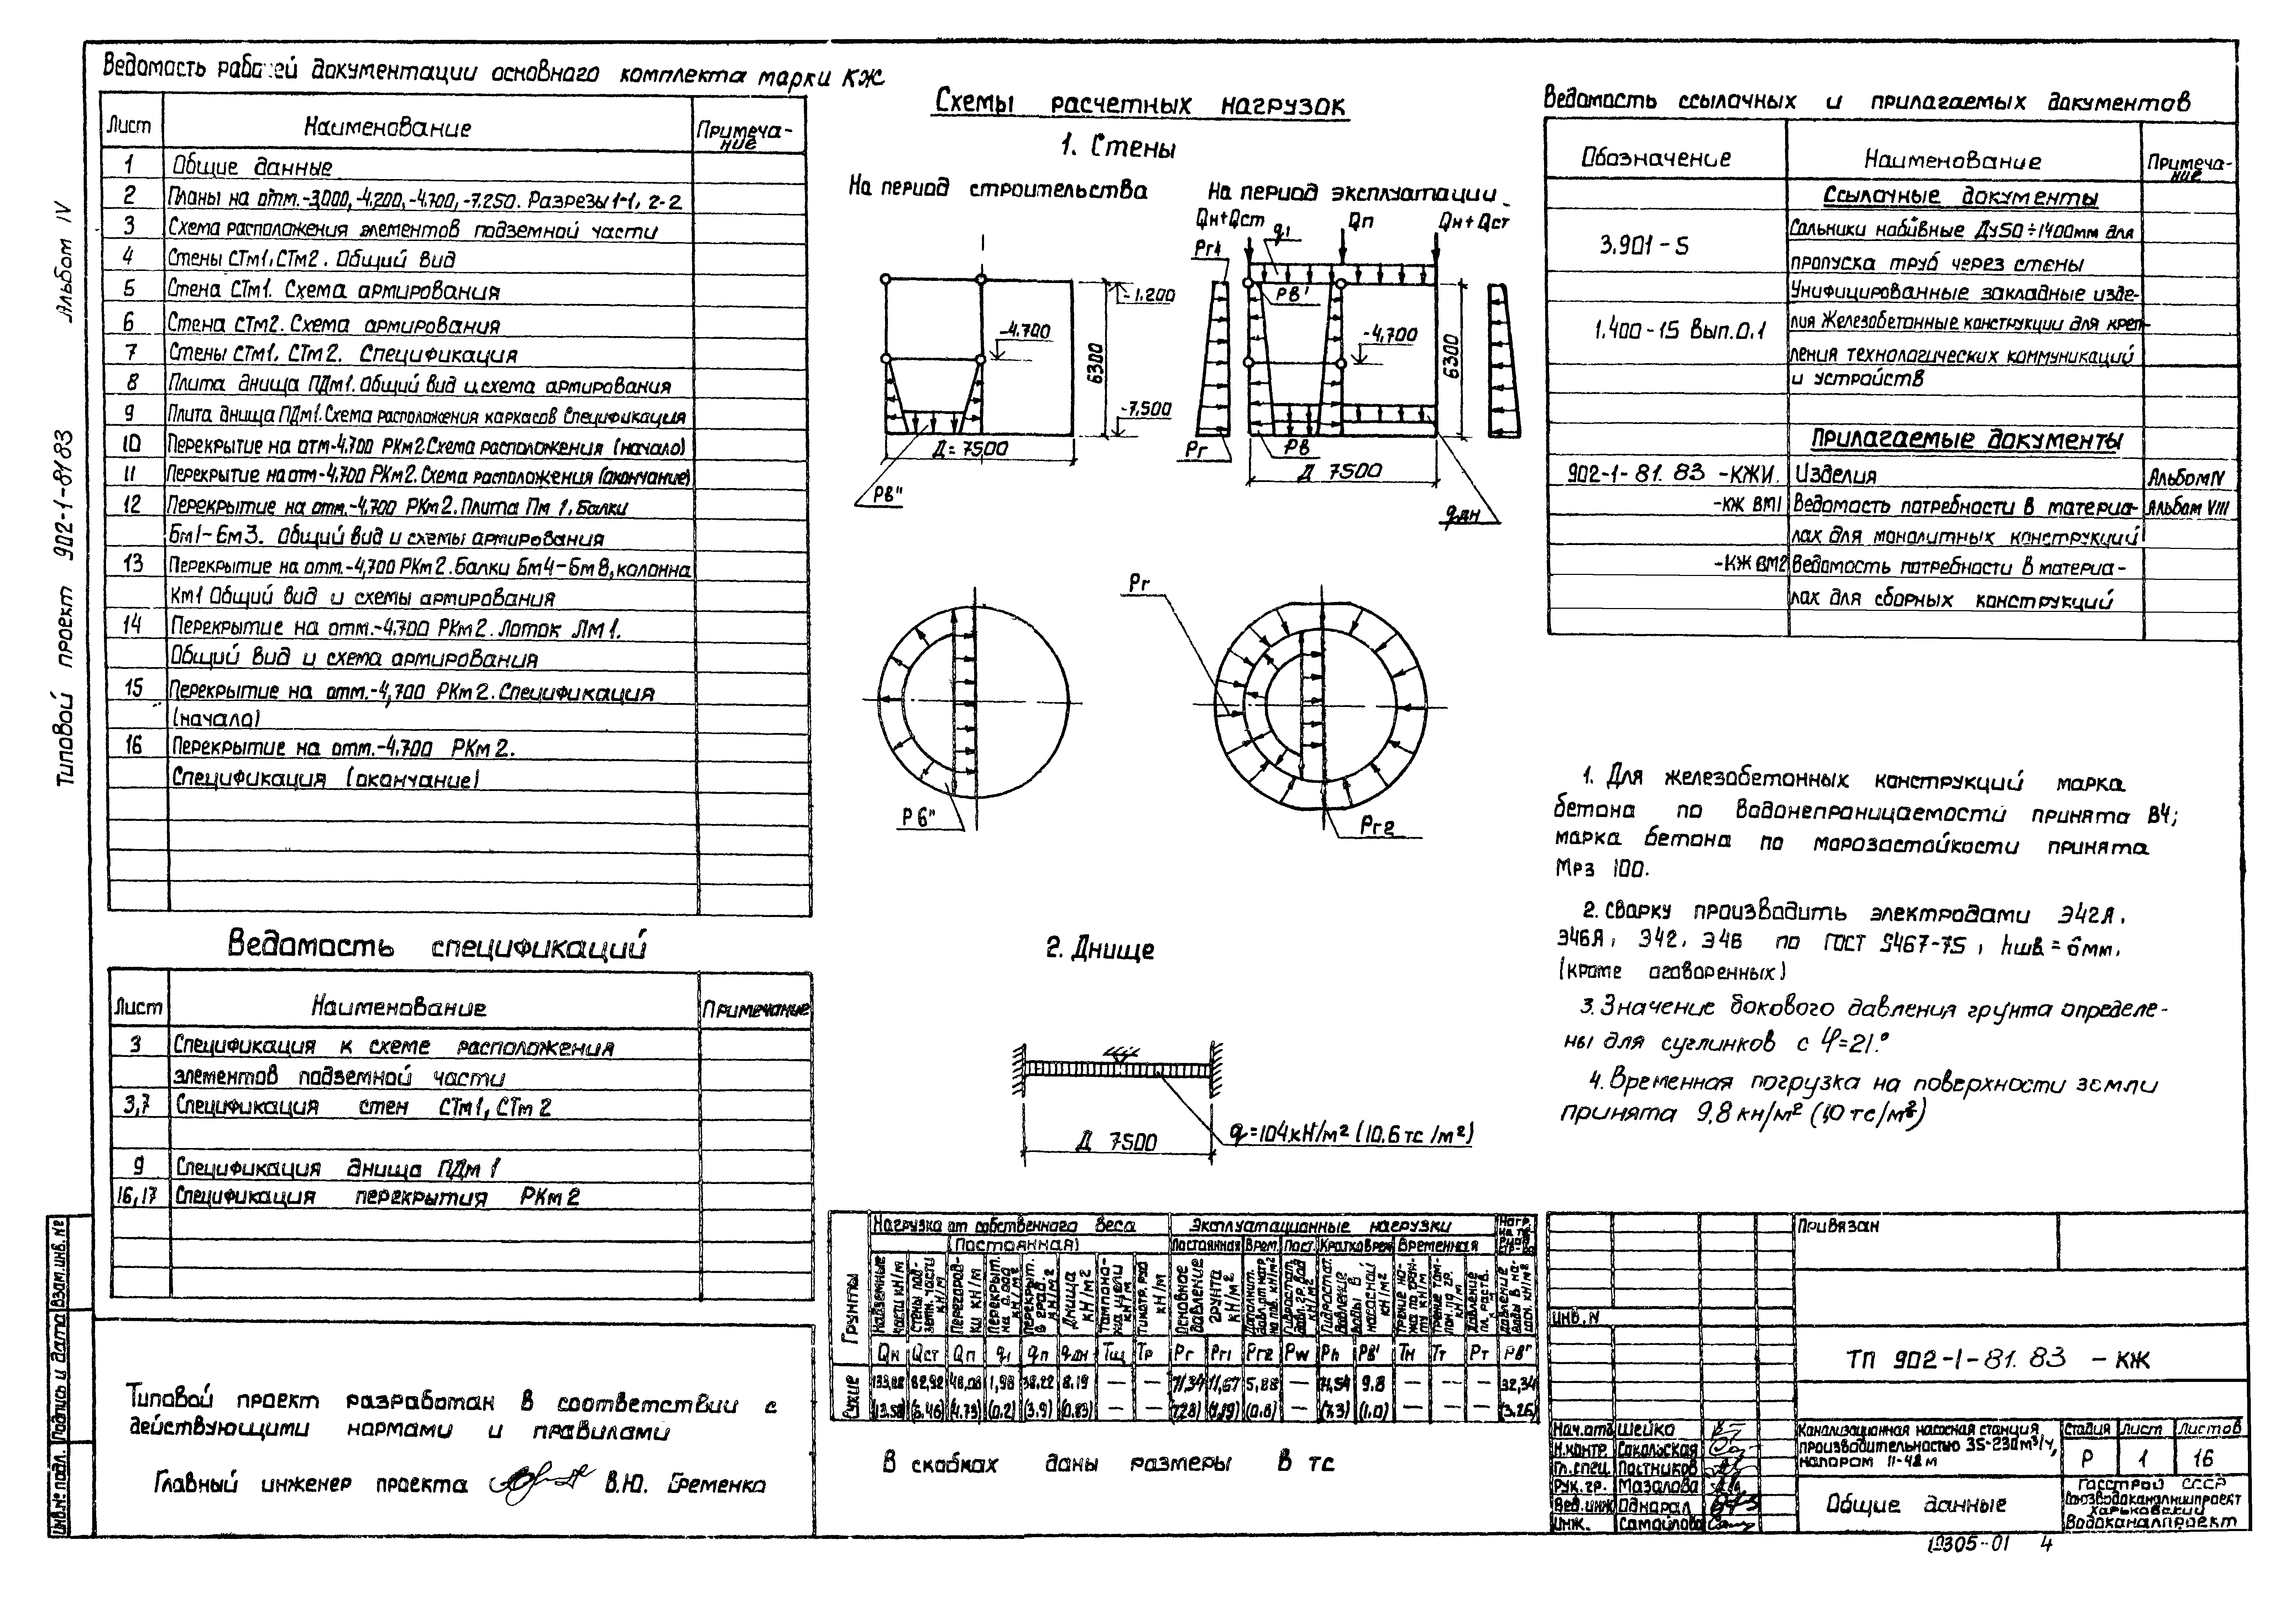 Альбом IV
Типовой проект 902-1-81 83
Ведомость рабочей документации основного комплекта марки КЖ
Лист Наименование Примеча-
ние
1 Общие данные
2 Планы на отм.-3,000,-4,200,-4,700,-7,250. Разрезы 1-1, 2-2
3 Схема расположения элементов подземной части
4 Стены СТм1, СТм2. Общий вид
5 Стена СТм1. Схема армирования
6 Стена СТм2. Схема армирования
7 Стены СТм1, СТм2. Спецификация
8 Плита днища ПДм1. Общий вид и схема армирования
9 Плита днища ПДм1. Схема расположения каркасов Спецификация
10 Перекрытие на отм-4.700 РКм2. Схема расположения (начало)
11 Перекрытие на отм-4.700 РКм2. Схема расположения (окончание)
12 Перекрытие на отм.-4,700 РКм2. Плита Пм 1, Балки
Бм1-Бм3. Общий вид и схемы армирования
13 Перекрытие на отм.-4,700 РКм2. Балки Бм4-Бм8, колонна
Км1 Общий вид и схемы армирования
14 Перекрытие на отм.-4.700 РКм2. Лоток Лм1.
Общий вид и схема армирования
15 Перекрытие на отм.-4,700 РКм2. Спецификация
(начало)
16 Перекрытие на отм.-4.700 РКм2.
Спецификация (окончание)
Ведомость спецификаций
Лист Наименование Примечание
3 Спецификация к схеме расположения
элементов подземной части
3,7 Спецификация стен СТм1, СТм2
9 Спецификация днища ПДм1
16,17 Спецификация перекрытия РКм2
Типовой проект разработан в соответствии с
действующими нормами и правилами
Главный инженер проекта В.Ю. Еременко
Инв.№ подл. Подпись и дата Взам.инв.№
Схемы расчетных нагрузок
1. Стены
На период строительства
-1.200
-4.700
6300
-7,500
Д=7500
Рв"
На период эксплуатации
Qн+Qст Qп Qн+Qст
Рг1 q1
Рв'
-4,700
6300
Рг Рв
Д 7500
qдн
Рв"
Рг
Рг2
2. Днище
Д 7500
q=104кН/м² (10.6 тс/м²)
Грунты Нагрузка от собственного веса Эксплуатационные нагрузки
(Постоянная) Постоянная Врем. Пост. Кратковрем Временная
Qн Qст Qп q1 qп qдн Тщ Тр Рг Рг1 Рг2 Рw Рh Рв' Тн Тт Рт Рв"
Сухие 8.19 — — 5,88 — 9.8 — — — 32,34
(4.73) (0.2) (3.9) (0.83) — — (0.6) — (7.3) (1.0) — — — (3.26)
В скобках даны размеры в тс
Ведомость ссылочных и прилагаемых документов
Обозначение Наименование Примеча-
ние
Ссылочные документы
3.901-5 Сальники набивные Ду50÷1400мм для
пропуска труб через стены
Унифицированные закладные изде-
1.400-15 Вып.0.1 лия Железобетонные конструкции для креп-
ления технологических коммуникаций
и устройств
Прилагаемые документы
902-1-81.83 -КЖИ. Изделия Альбом IV
-КЖ ВМ1 Ведомость потребности в материа- Альбом VIII
лах для монолитных конструкций
-КЖ ВМ2 Ведомость потребности в материа-
лах для сборных конструкций
1. Для железобетонных конструкций марка
бетона по водонепроницаемости принята В4;
марка бетона по морозостойкости принята
Мрз 100.
2. Сварку производить электродами Э42А,
Э46А, Э42, Э46 по ГОСТ 9467-75, hшв=6мм.
(кроме оговоренных)
3. Значение бокового давления грунта определе-
ны для суглинков с φ=21°
4. Временная погрузка на поверхности земли
принята 9,8 кн/м² (1,0 тс/м²)
Привязан
ИНВ.N
ТП 902-1-81.83 -КЖ
Нач.отд Шейко
Н.контр. Сокольская
Гл.спец. Постников
Рук.гр. Мазалова
Вед.инж Однорал
Инж. Самойлова
Канализационная насосная станция
производительностью 35-230м³/ч,
напором 11-48 м
Стадия Лист Листов
Р 1 16
Общие данные
Госстрой СССР
Союзводоканалниипроект
Харьковский
Водоканалпроект
19305-01 4